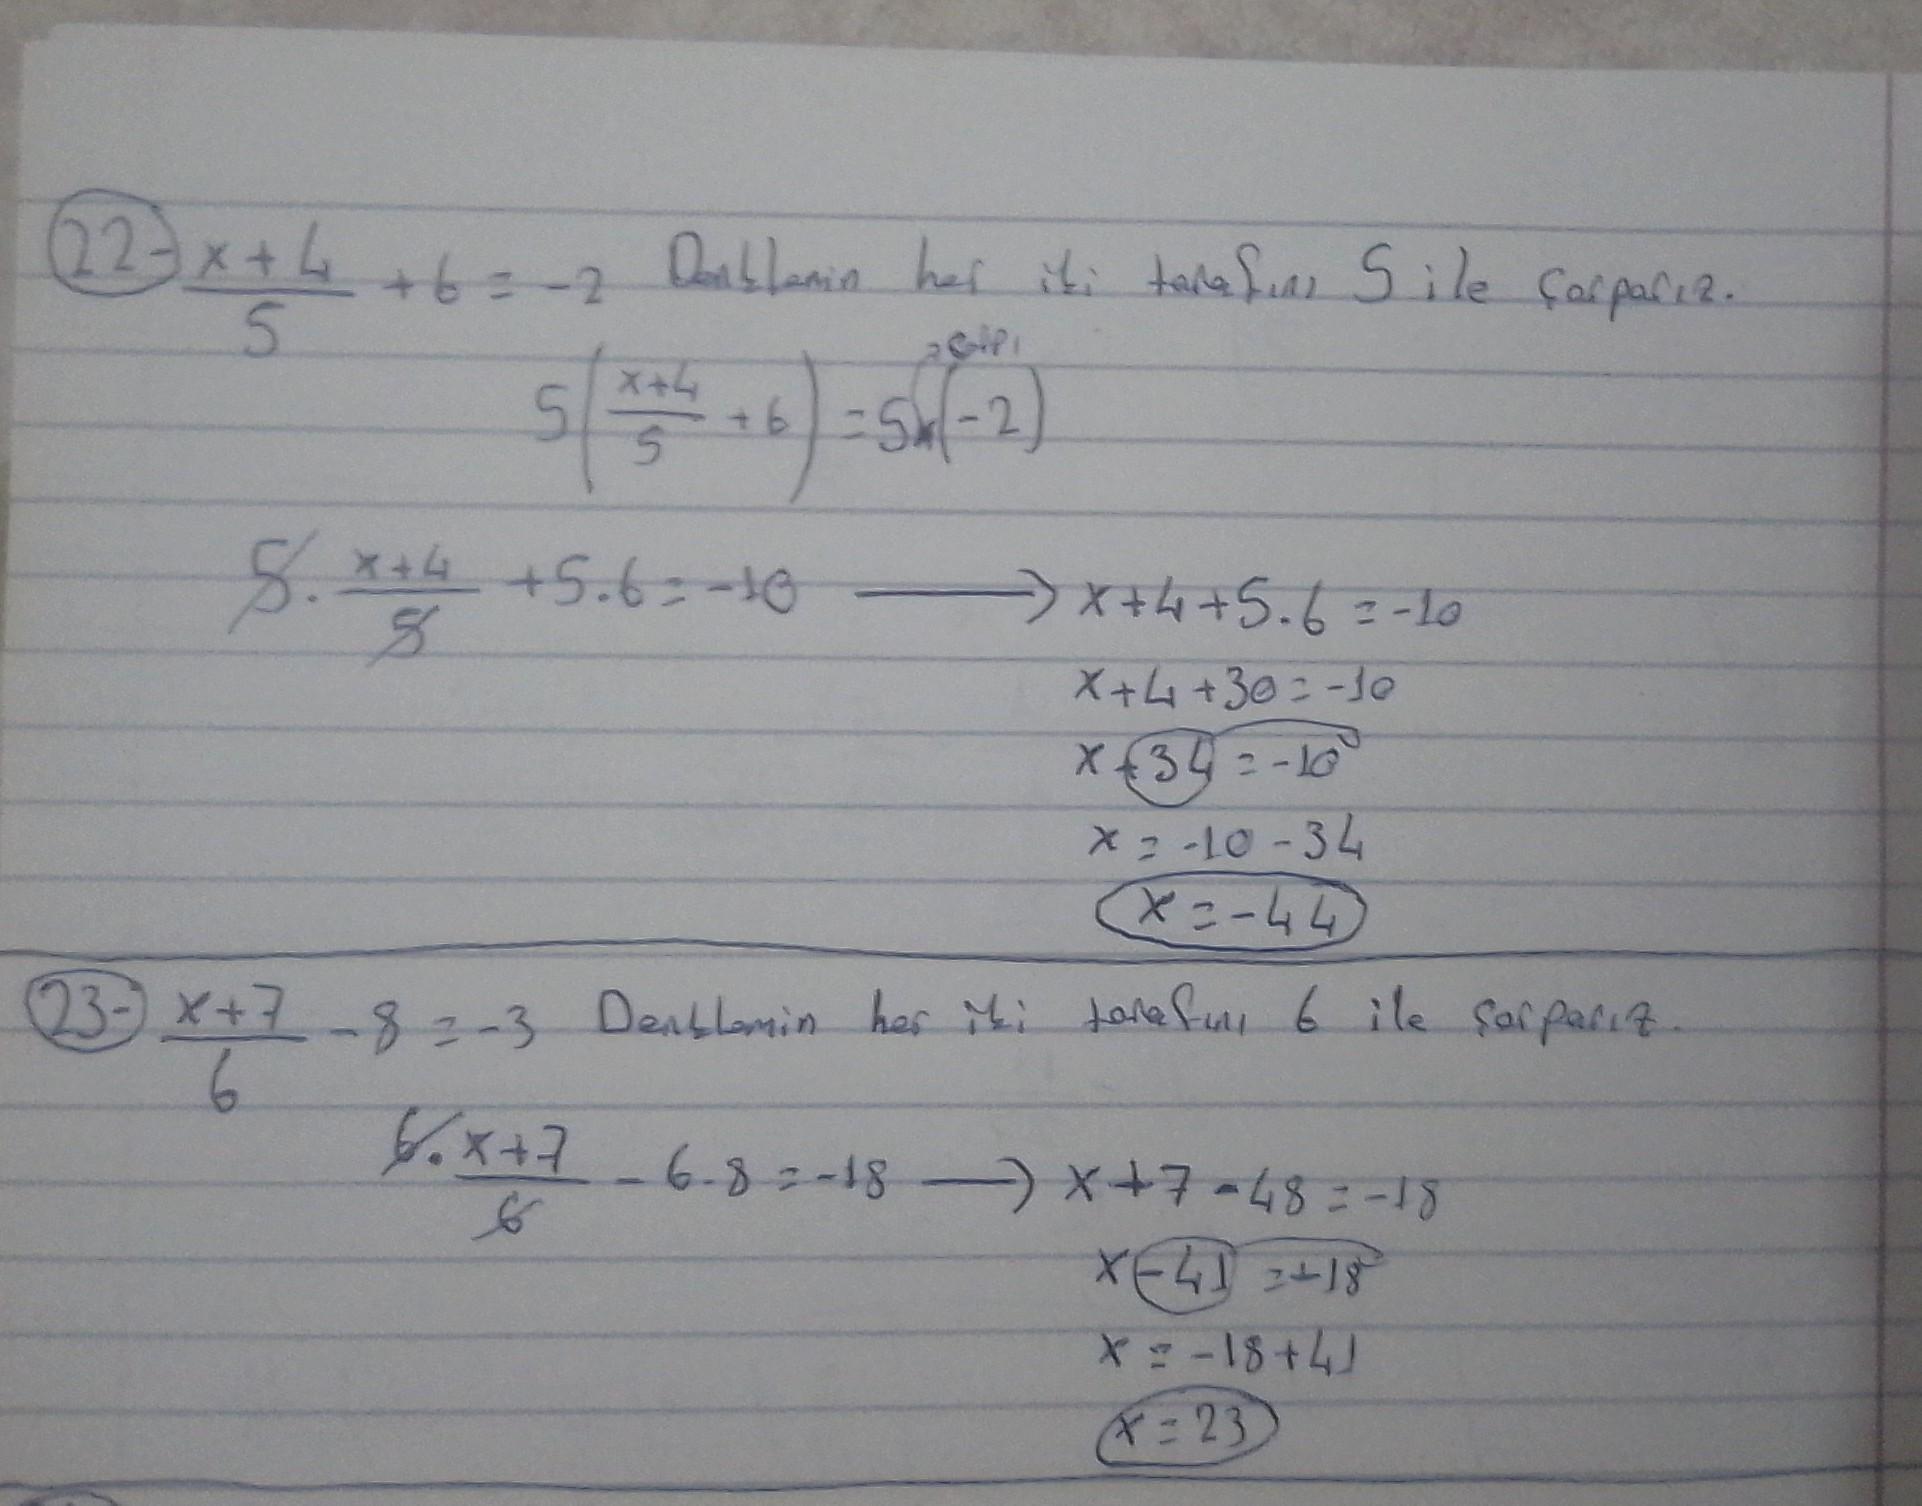 22- x+4/5 + 6 = -2 Denklemin her iki tarafını 5 ile çarparız.
çarpı
5(x+4/5 + 6) = 5x(-2)
5. x+4/5 + 5.6 = -10 → x+4+5.6 = -10
x+4+30 = -10
x+34 = -10
x = -10-34
x = -44
23- x+7/6 - 8 = -3 Denklemin her iki tarafını 6 ile çarparız.
6. x+7/6 - 6.8 = -18 → x+7-48 = -18
x-41 = -18
x = -18+41
x = 23